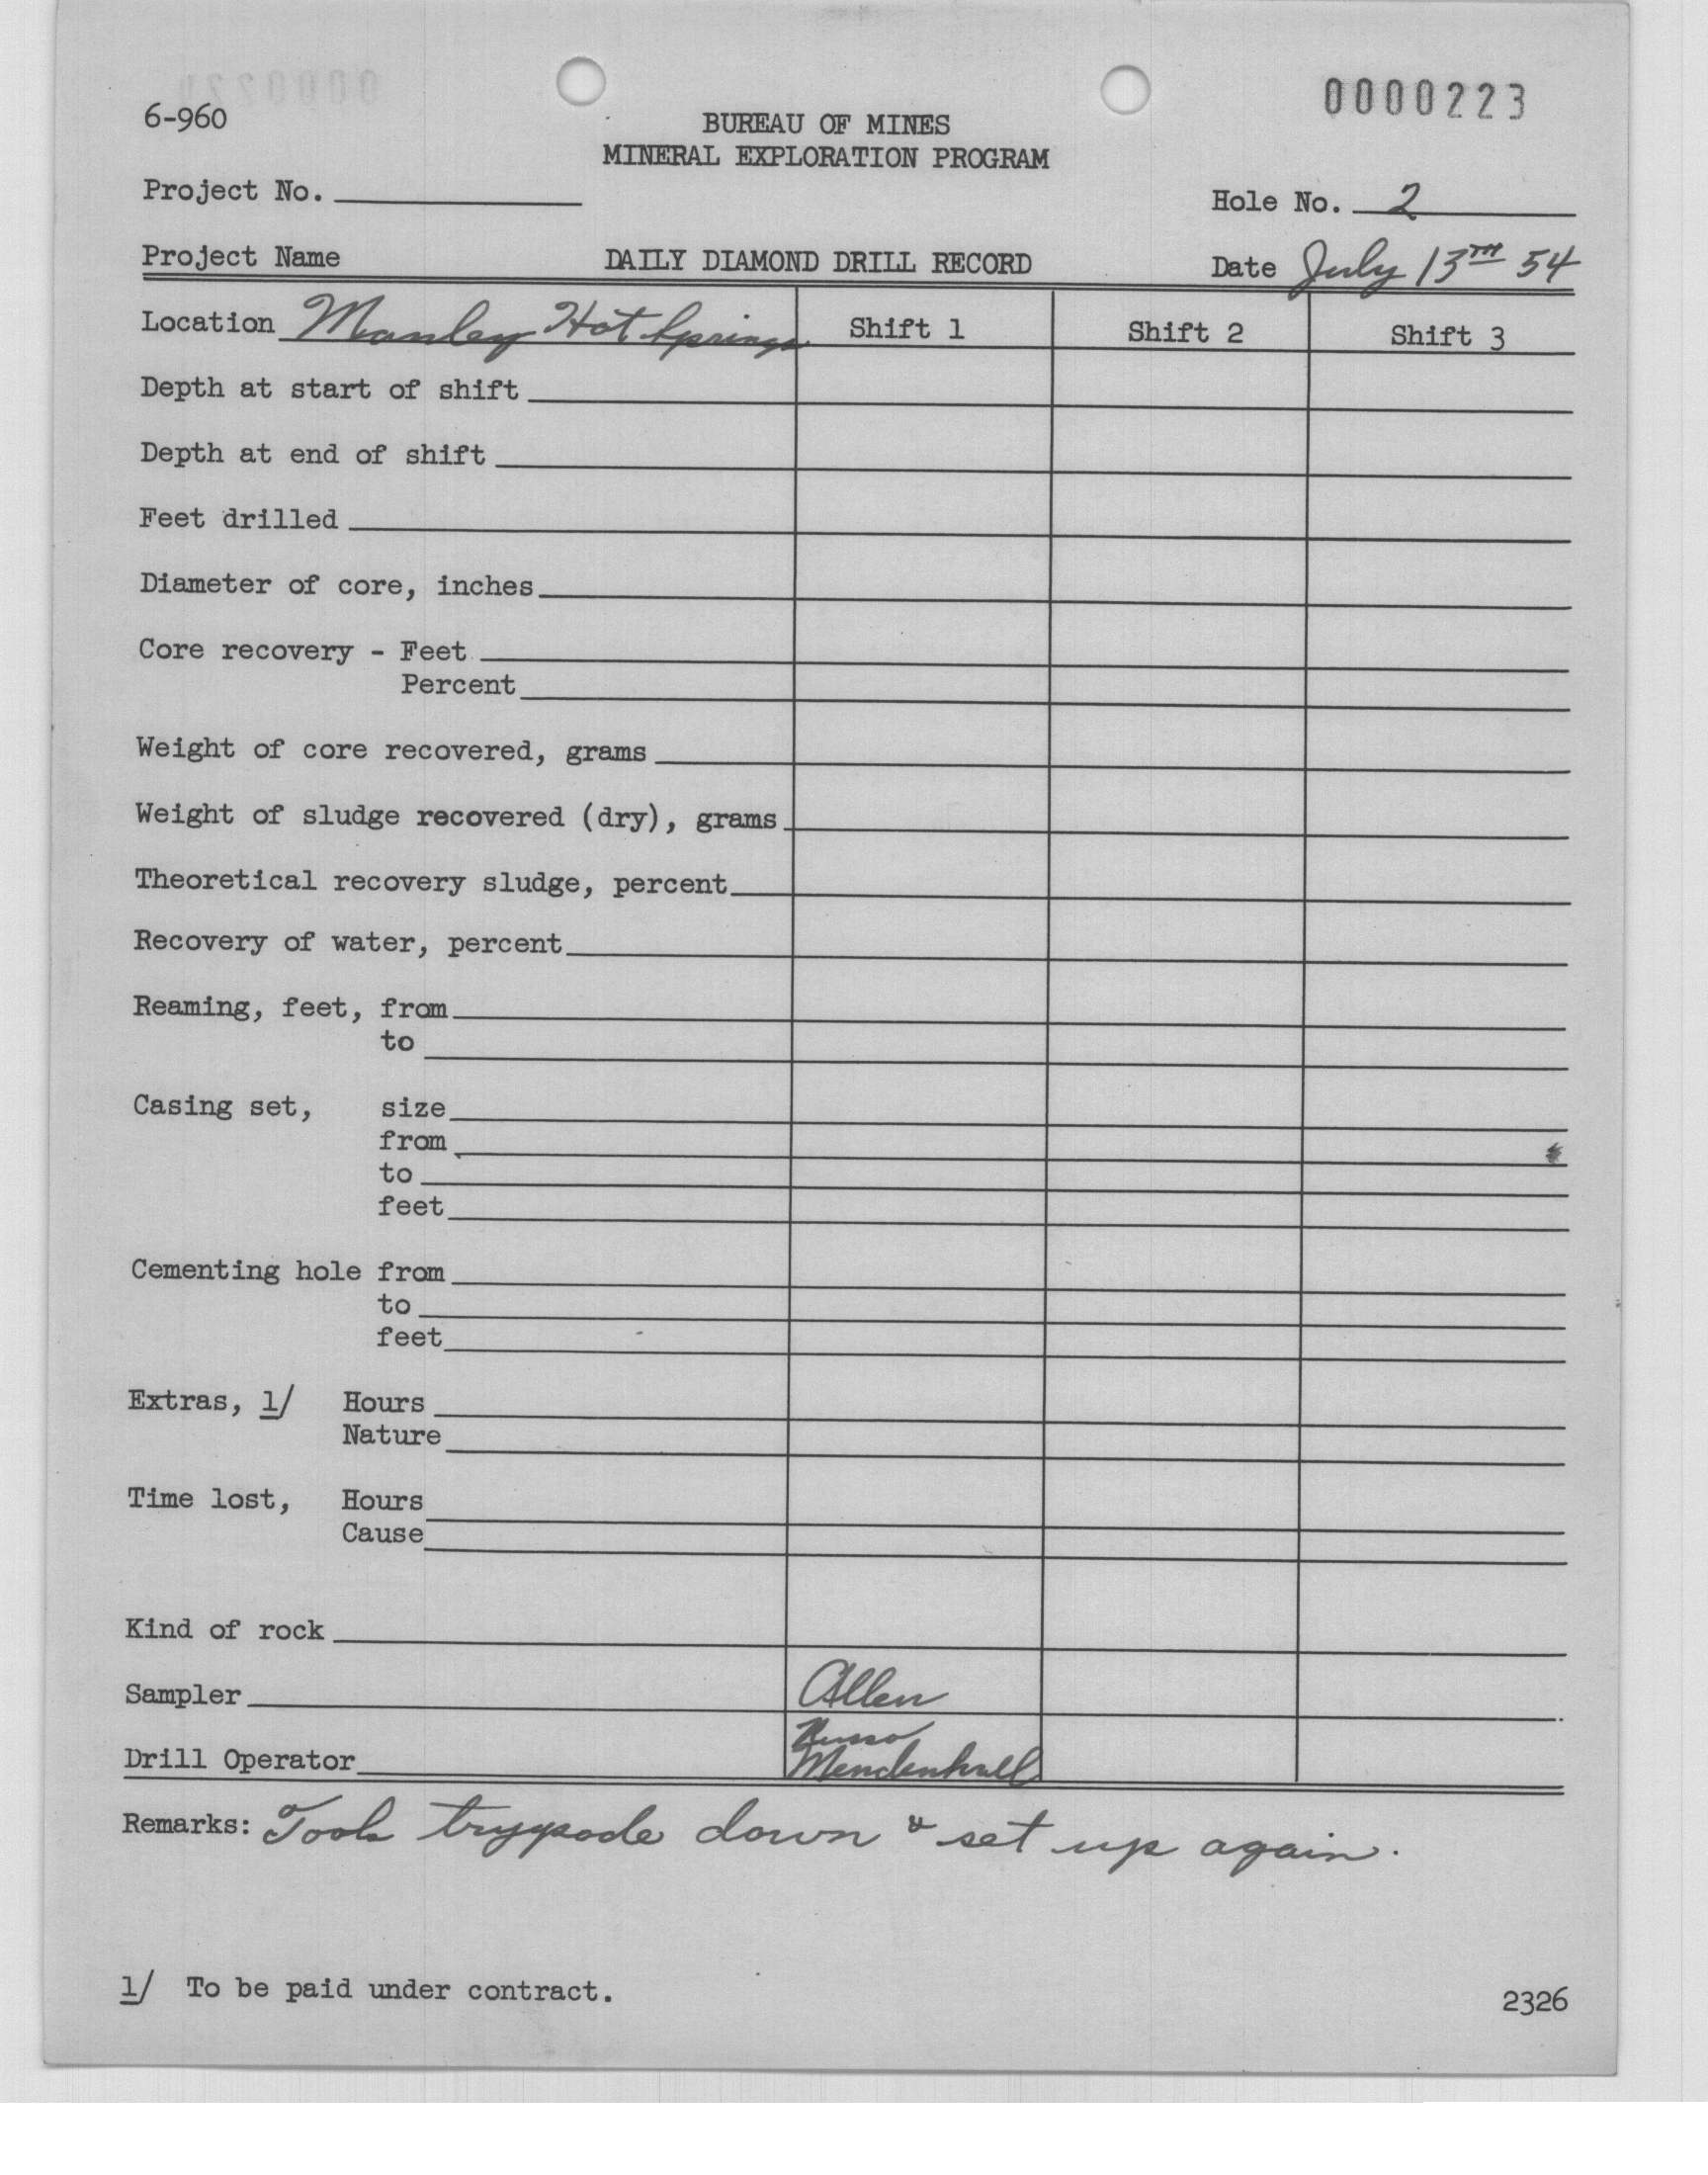 0000223
6-960
BUREAU OF MINES
MINERAL EXPLORATION PROGRAM
Project No.
Hole No. 2
Project Name
DAILY DIAMOND DRILL RECORD
Date July 13TH 54
Location Manley Hot Springs Shift 1 Shift 2 Shift 3
Depth at start of shift
Depth at end of shift
Feet drilled
Diameter of core, inches
Core recovery - Feet
Percent
Weight of core recovered, grams
Weight of sludge recovered (dry), grams
Theoretical recovery sludge, percent
Recovery of water, percent
Reaming, feet, from
to
Casing set, size
from
to
feet
Cementing hole from
to
feet
Extras, 1/ Hours
Nature
Time lost, Hours
Cause
Kind of rock
Sampler Allen
Russo
Drill Operator Mendenhall
Remarks: Took trypode down & set up again.
1/ To be paid under contract.
2326